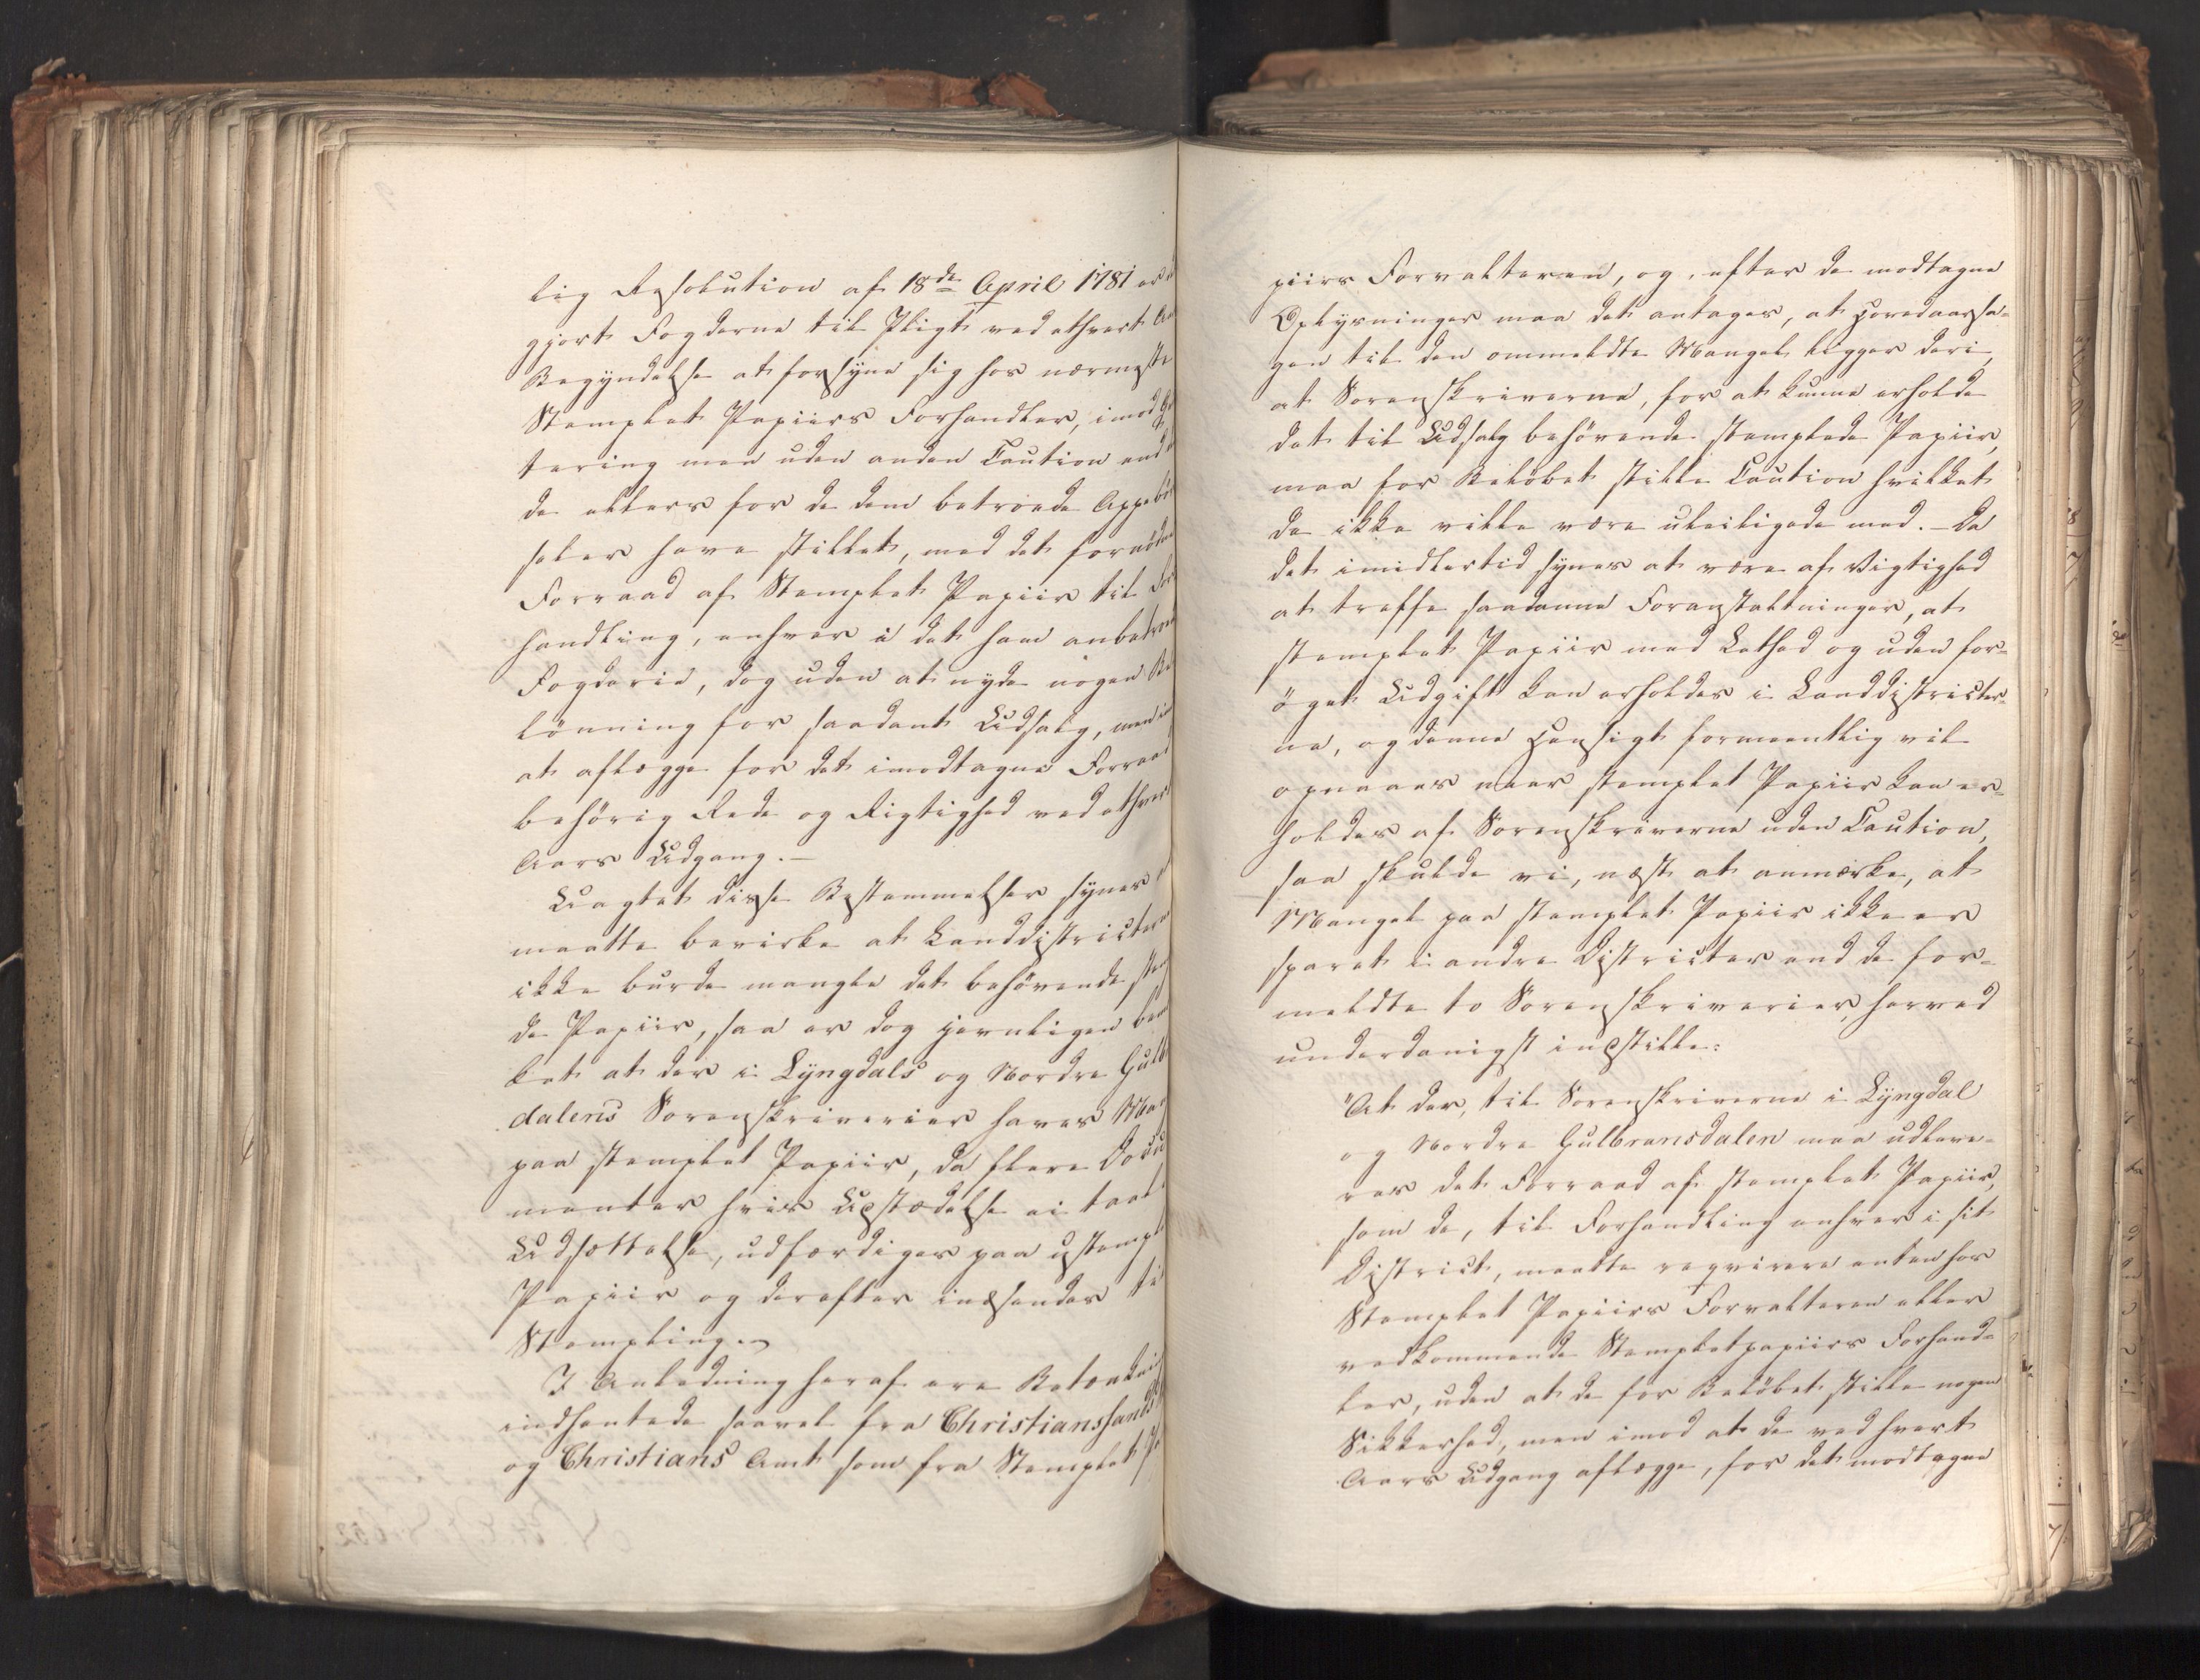 lig Resolution af 18de April 1781 er
gjort Fogderne til Pligt ved ethvert
Begyndelse at forsyne sig hos nærmeste
Stemplet Papiirs Forhandler, imod
tering men uden anden Caution end
de ellers for de dem betroede Oppebør
seler have stillet, med det fornødne
Forraad af Stemplet Papiir til For
handling, enhver i det ham anbetroede
Fogderie, dog uden at nyde nogen Be
lønning for saadant Udsalg, men
at aflægge for det imodtagne Forraad
behørig Rede og Rigtighed ved ethvert
Aars Udgang.-
Uagtet disse Bestemmelser synes
maatte bevirke at Landdistricterne
ikke burde mangle det behøvende stem
de Papiir, saa er dog jevnligen bem
ket at der i Lyngdals og Nordre Gulb
dalens Sorenskriverier haves Man
paa stemplet Papiir, da flere Docu
menter hvis Udstædelse ei taal
Udsættelse, udfærdiges paa ustempl
Papiir og derefter indsendes til
Stempling.
I Anledning heraf ere Betænkni
indhentede saavel fra Christianssands
og Christians Amt som fra Stemplet Pa
piirs Forvalteren, og efter de modtagne
Oplysninger maa det antages, at Hovedaarsa-
gen til den ommeldte Mangel ligger deri
at Sorenskriverne, for at kunne erholde
det til Udsalg behøvende stemplede Papiir,
maa for Beløbet stille Caution hvilket
de ikke ville være uleiligede med. - Da
det imidlertid synes at være af Vigtighed
at treffe saadanne Foranstaltninger, at
stemplet Papiir med Lethed og uden for-
øget Udgift kan erholdes i Landdistricter-
ne, og denne Hensigt formeentlig vil
opnaaes naar stemplet Papiir kan er-
holdes af Sorenskriverne uden Caution,
saa skulde vi, næst at anmærke, at
Mangel paa stemplet Papiir ikke er
sporet i andre Districter end de for-
meldte to Sorenskriverier, herved
underdanigst indstille:
"At der, til Sorenskriverne i Lyngdal
og Nordre Gulbransdalen maa udleve-
res det Forraad af stemplet Papiir,
som de, til Forhandling enhver i sit
District, maatte reqvirere enten hos
Stemplet Papiirs Forvalteren eller
vedkommende Stempletpapiirs Forhand-
ler, uden at de for Beløbet stille nogen
Sikkerhed, men imod at de ved hvert
Aars Udgang aflægge, for det modtagne